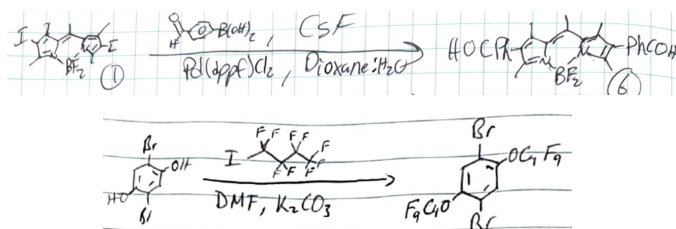 I I BF₂ ① O H B(OH)₂, CsF
Pd(dppf)Cl₂, Dioxane:H₂O
HOCPh PhCOH BF₂ ⑥
Br OH HO Br
I F F F F F F F F F
DMF, K₂CO₃
Br OC₄F₉ F₉C₄O Br